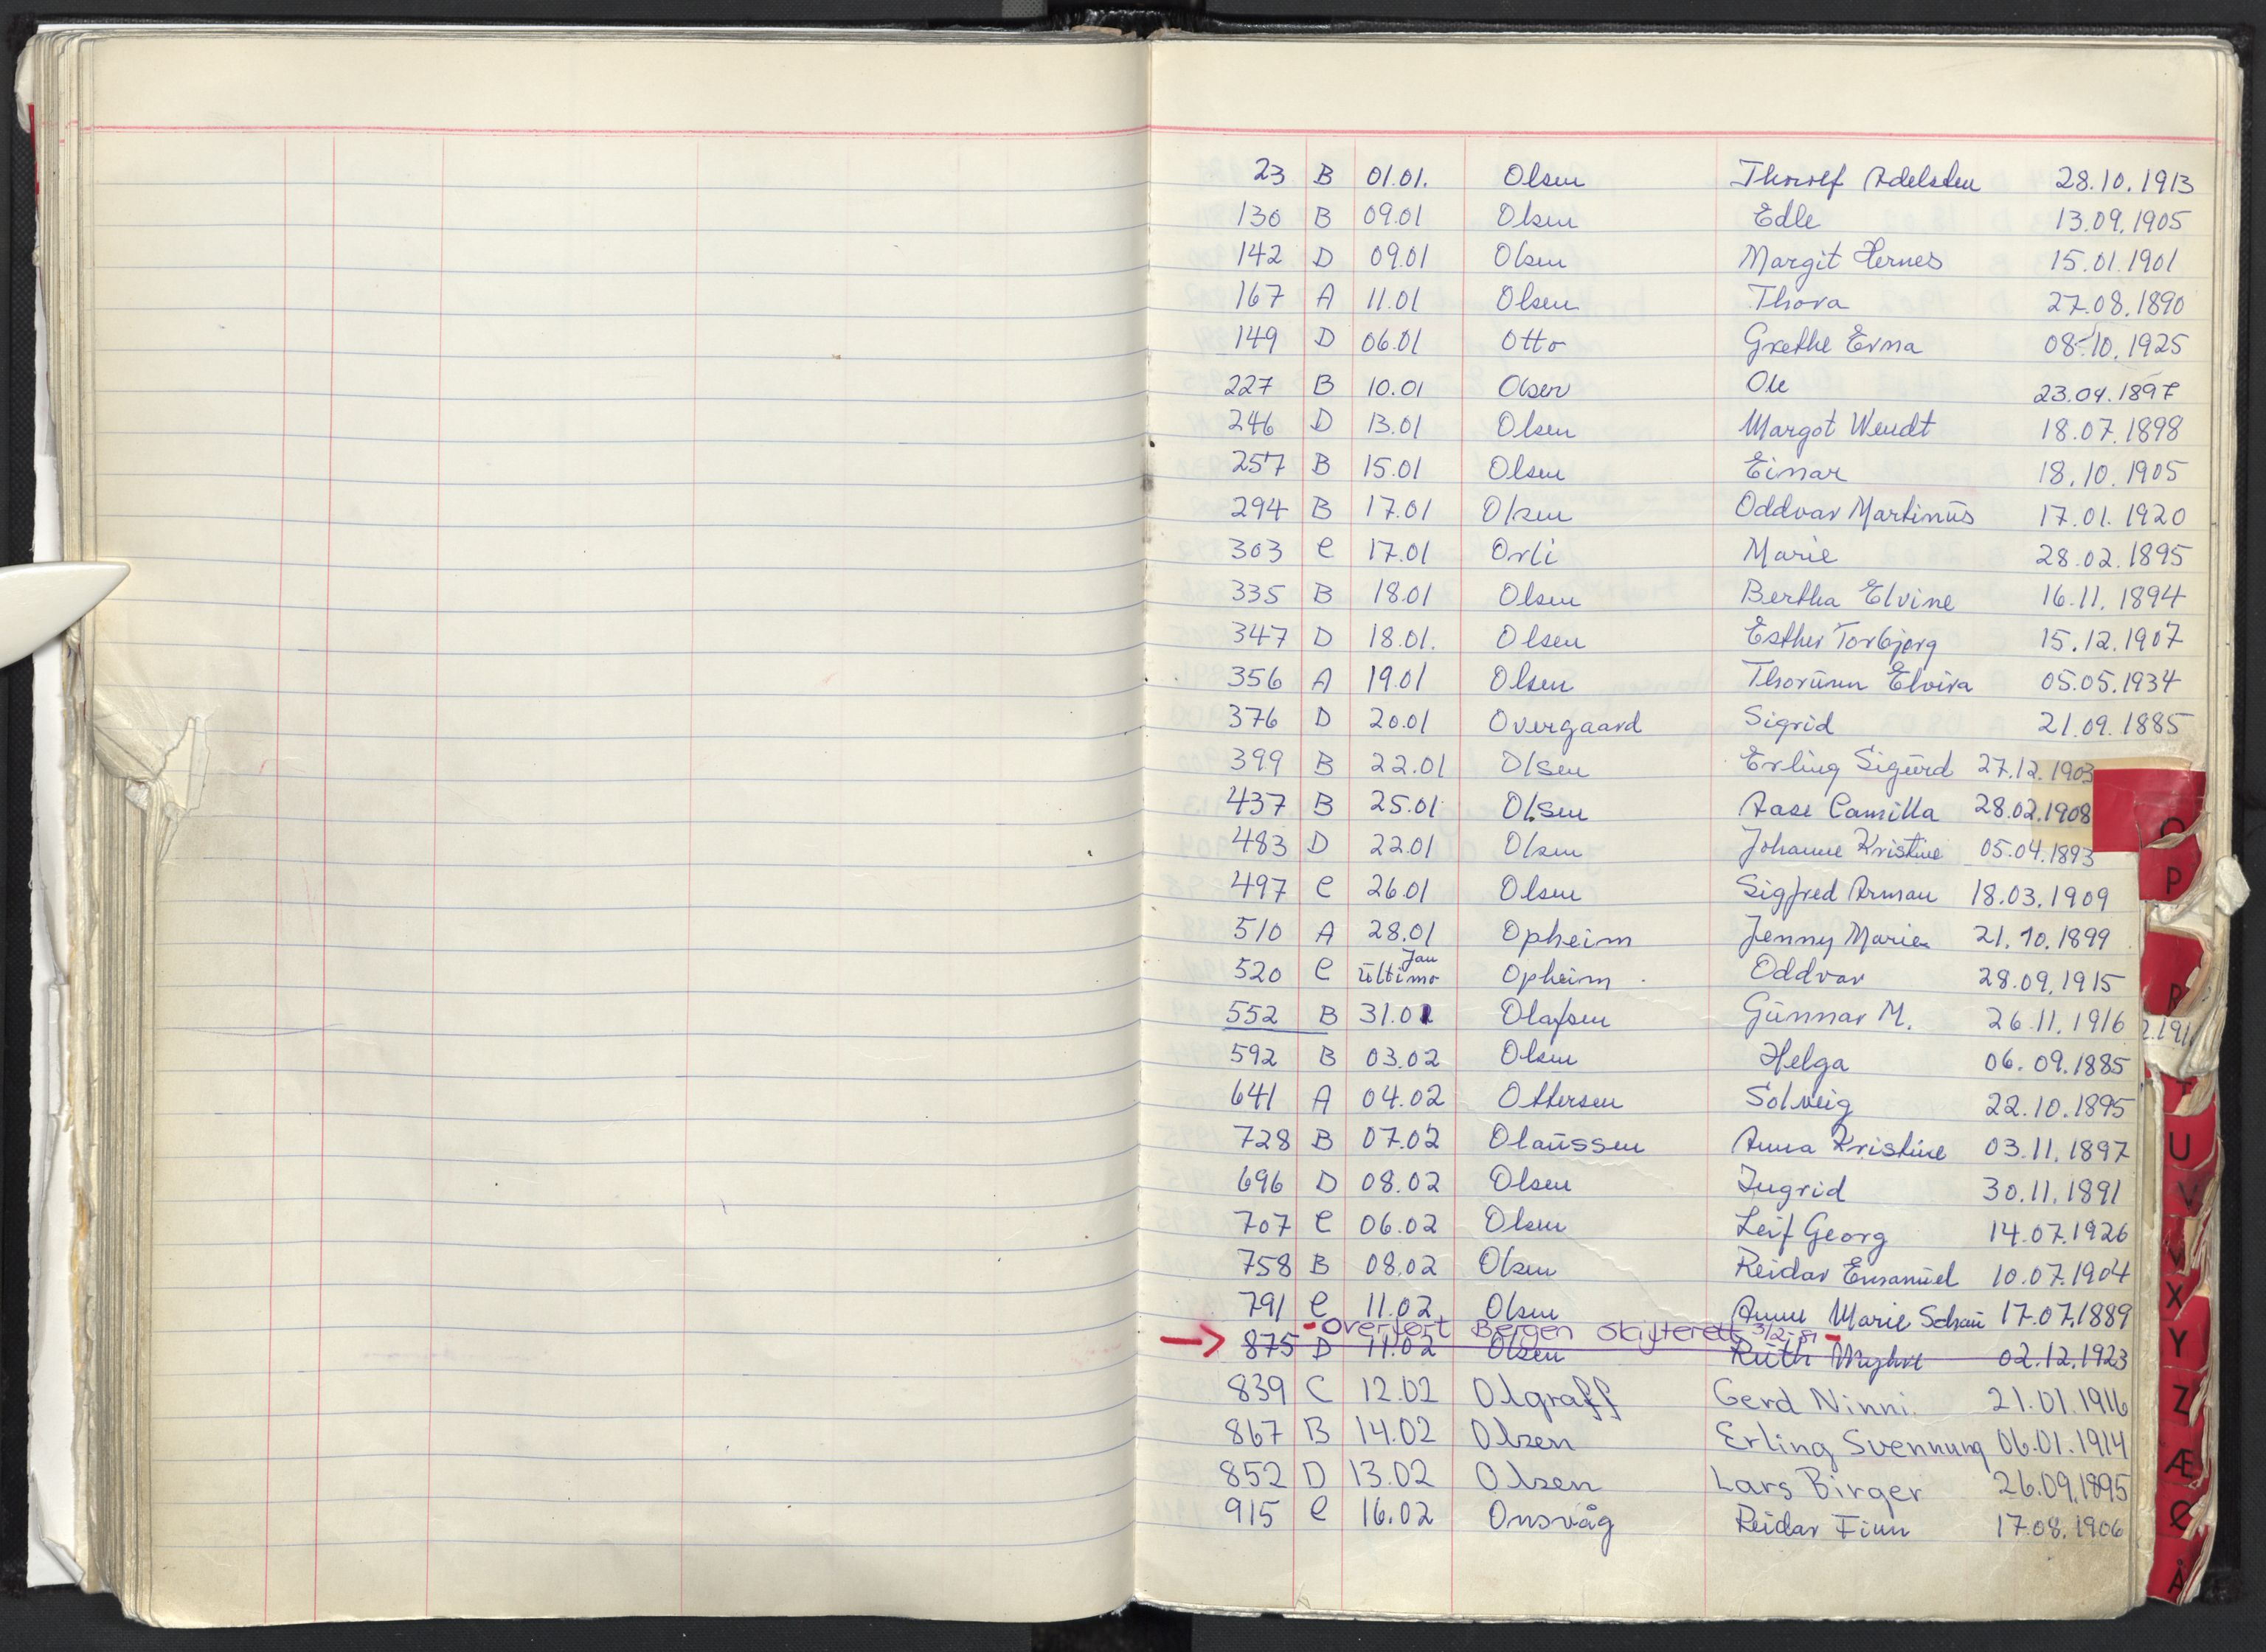 23 B 01.01. Olsen Thorolf Adelsten 28.10.1913
130 B 09.01 Olsen Edle 13.09.1905
142 D 09.01 Olsen Margit Hernes 15.01.1901
167 A 11.01 Olsen Thora 27.08.1890
149 D 06.01 Otto Grethe Erna 08.10.1925
227 B 10.01 Olsen Ole 23.04.1897
246 D 13.01 Olsen Margot Wendt 18.07.1898
257 B 15.01 Olsen Einar 18.10.1905
294 B 17.01 Olsen Oddvar Martinus 17.01.1920
303 C 17.01 Orli Marie 28.02.1895
335 B 18.01 Olsen Bertha Elvine 16.11.1894
347 D 18.01. Olsen Esther Torbjørg 15.12.1907
356 A 19.01 Olsen Thorunn Elvira 05.05.1934
376 D 20.01 Overgaard Sigrid 21.09.1885
399 B 22.01 Olsen Erling Sigurd 27.12.1903
437 B 25.01 Olsen Aase Camilla 28.02.1908
483 D 22.01 Olsen Johanne Kristine 05.04.1893
497 C 26.01 Olsen Sigfred Arman 18.03.1909
510 A 28.01 Opheim Jenny Marie 21.10.1899
520 C Ultimo Jan Opheim Oddvar 28.09.1915
552 B 31.01 Olafsen Gunnar M. 26.11.1916
592 B 03.02 Olsen Helga 06.09.1885
641 A 04.02 Ottersen Solveig 22.10.1895
728 B 07.02 Olaussen Anna Kristine 03.11.1897
696 D 08.02 Olsen Ingrid 30.11.1891
707 C 06.02 Olsen Leif Georg 14.07.1926
758 B 08.02 Olsen Reidar Emanuel 10.07.1904
791 C 11.02 Olsen Anne Marie 17.07.1889
- overført Bergen skifterett 3/2-81 -
→ 875 D 11.02 Olsen Ruth Myhre 02.12.1923
839 C 12.02 Olgraff Gerd Ninni 21.01.1916
867 B 14.02 Olsen Erling Svennung 06.01.1914
852 D 13.02 Olsen Lars Birger 26.09.1895
915 C 16.02 Onsvåg Reidar Finn 17.08.1906
P
R
U
V
X
Y
Z
Æ
Ø
Å